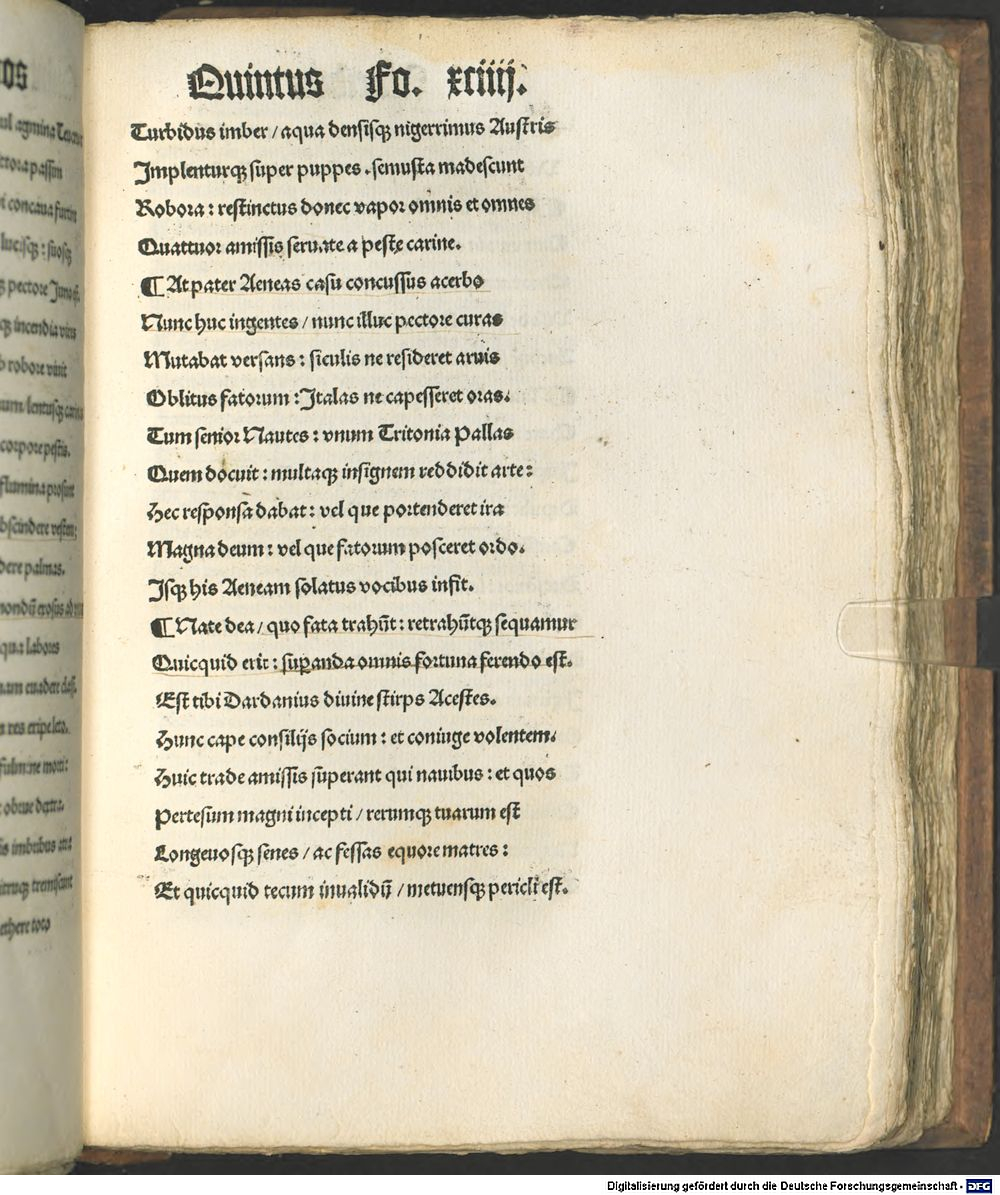 Quintus Fo. xciiij.
Turbidus imber / aqua densisqꝫ nigerrimus Austris
Implenturqꝫ super puppes . semusta madescunt
Robora : restinctus donec vapor omnis et omnes
Quattuor amissis seruate a peste carine.
¶ At pater Aeneas casu concussus acerbo
Nunc huc ingentes / nunc illuc pectore curas
Mutabat versans : siculis ne resideret aruis
Oblitus fatorum : Italas ne capesseret oras.
Tum senior Nautes : vnum Tritonia Pallas
Quem docuit : multaqꝫ insignem reddidit arte :
Hec responsa dabat : vel que portenderet ira
Magna deum : vel que fatorum posceret ordo.
Isqꝫ his Aeneam solatus vocibus infit.
¶ Nate dea / quo fata trahūt : retrahūtqꝫ sequamur
Quicquid erit : suꝑanda omnis fortuna ferendo est.
Est tibi Dardanius diuine stirps Acestes.
Hunc cape consilijs socium : et coniuge volentem.
Huic trade amissis superant qui nauibus : et quos
Pertesum magni incepti / rerumqꝫ tuarum est
Longeuosqꝫ senes / ac fessas equore matres :
Et quicquid tecum inualidū / metuensqꝫ pericli est.
os
ul agmina
passim
concaua
suosqꝫ
pectore
incendia
robore
corpore pestis.
flumina
abscindere vestem:
palmas.
labores
euadere
res eripe leto.
obrue dextra.
imbribus
ethere toto
Digitalisierung gefördert durch die Deutsche Forschungsgemeinschaft - DFG